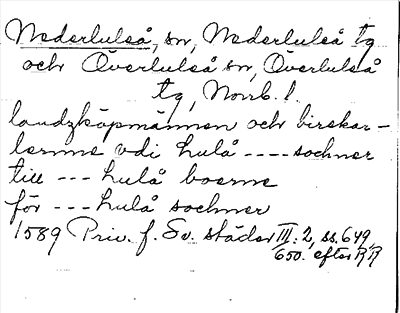 Nederluleå, sn, Nederluleå tg
och Överluleå sn, Överluleå
tg, Norrb. l.
landzköpmännen och birckar-
lernne vdi hulå ---- sochner
till --- hulå boerne
för --- hulå sochner
1589 Priv. f. Sv. städer III:2, ss. 649,
650. efter RR